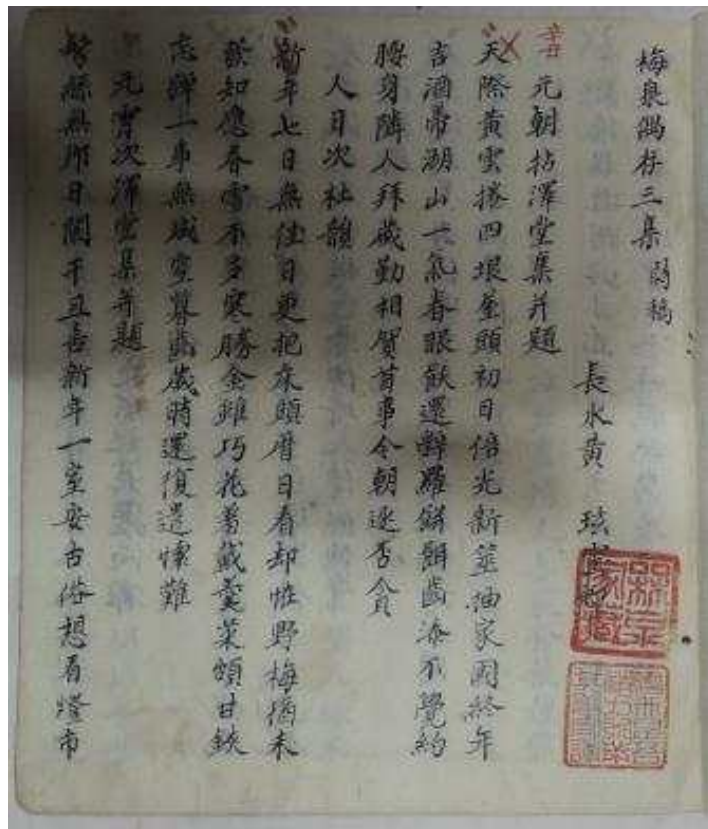 梅泉偶存三集 稿
長水黃 玹
辛丑 元朝拈澤堂集并題
天際黃雲捲四垠 頭初日倍光新 抽家園終年
吉酒帝湖山一氣春眼飫還辭羅餅餌齒添不覺約
腰身隣人拜歲勤相賀首事今朝 否貪
人日次杜韻
新年七日無佳日更把床頭曆日看却恠野梅猶未
發知應春雪不多寒勝金雖巧花羞戴羹菜頗甘鋏
忘彈一事無成空算齒歲時還復遣懷難
元宵次澤堂集并題
無那日闌干且喜新年一室安古俗想看燈市